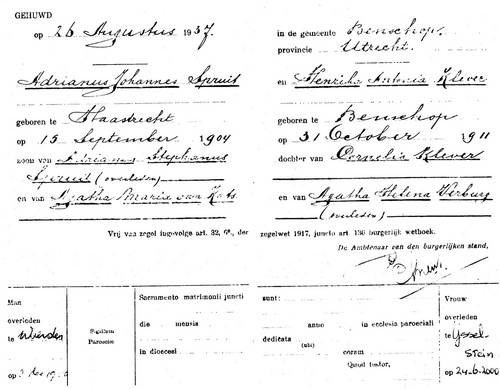 GEHUWD
op 26 Augustus 1937. in de gemeente Benschop.
provincie Utrecht.
Adrianus Johannes Spruit en Henrika Antonia Klever
geboren te Haastrecht geboren te Benschop
op 15 September 1904 op 31 October 1911
zoon van Adrianus Stephanus dochter van Cornelis Klever
Spruit (overleden)
en van Agatha Maria van en van Agatha Helena Verburg
(overleden)
Vrij van zegel ingevolge art. 32, 6°, der zegelwet 1917, juncto art. 136 burgerlijk wetboek.
De Ambtenaar van den burgerlijken stand,
Man
overleden
te Woerden
op
Sigillum
Paroeciae
Sacramento matrimonii juncti sunt:
die mensis anno in ecclesia paroeciali
dedicata
(ubi)
in dioecesi coram
Quod testor,
Vrouw
overleden
te IJssel-
stein
op 24-6-2000